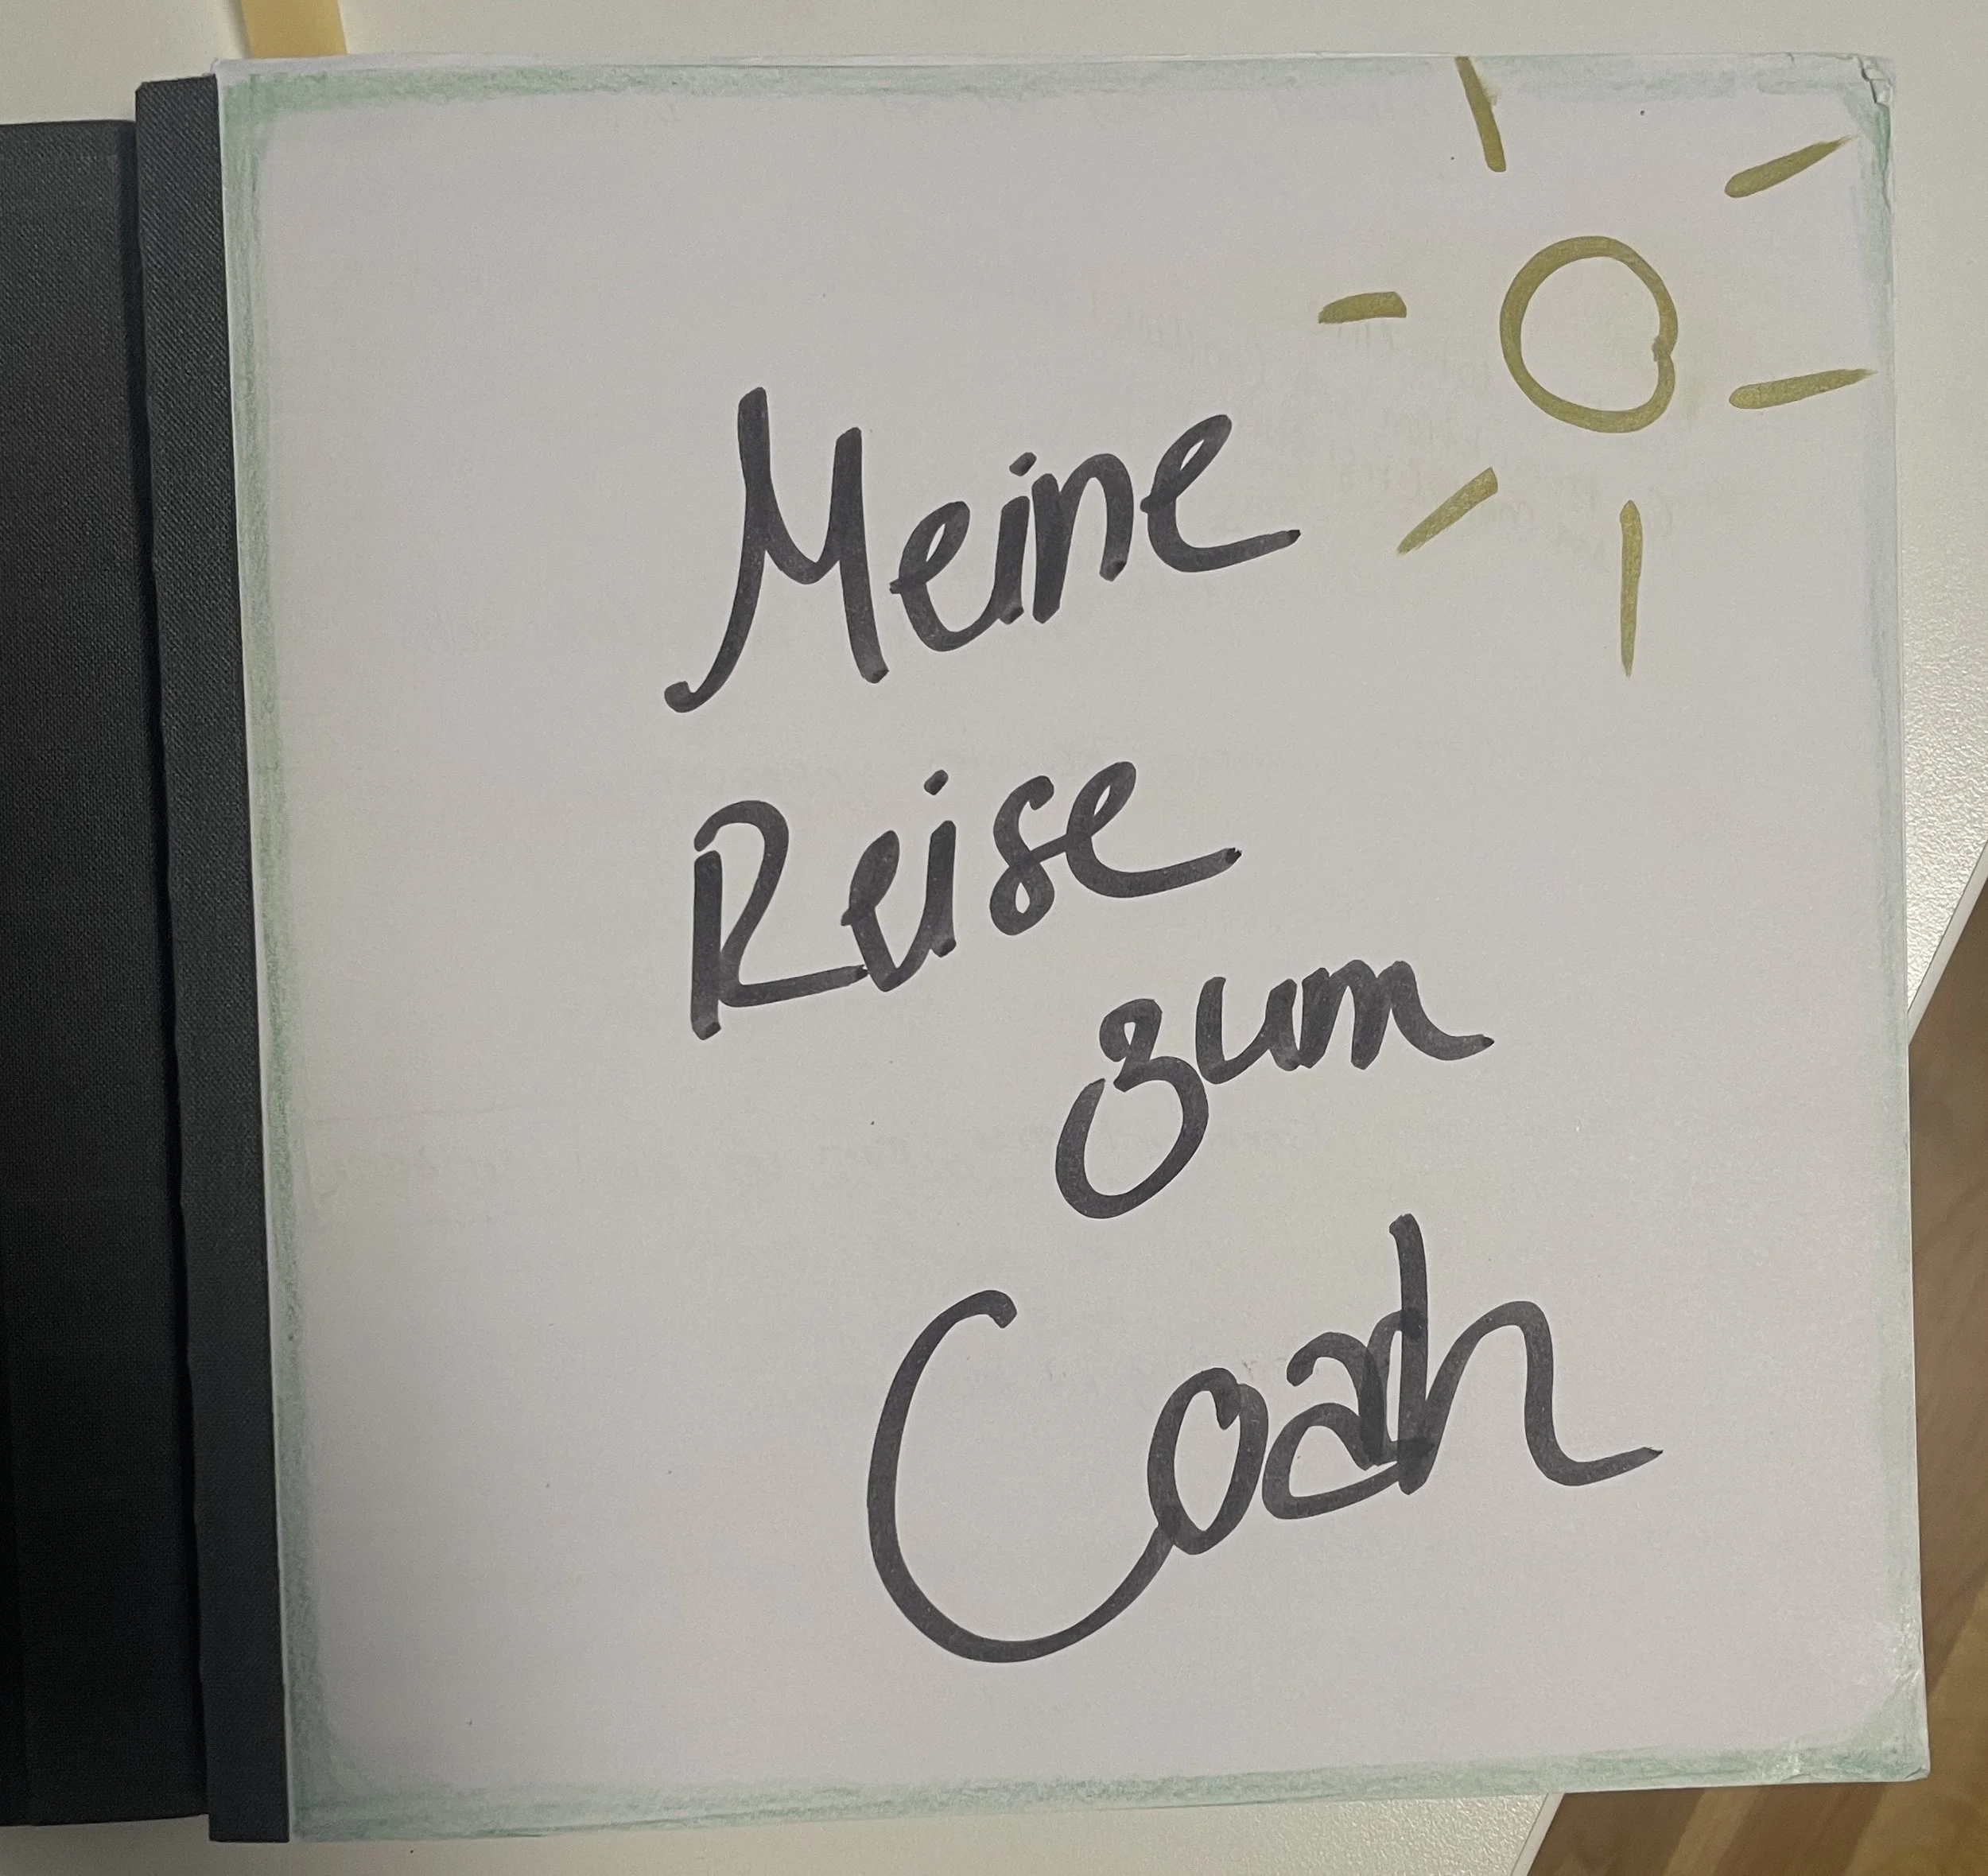 Meine
Reise
zum
Coach